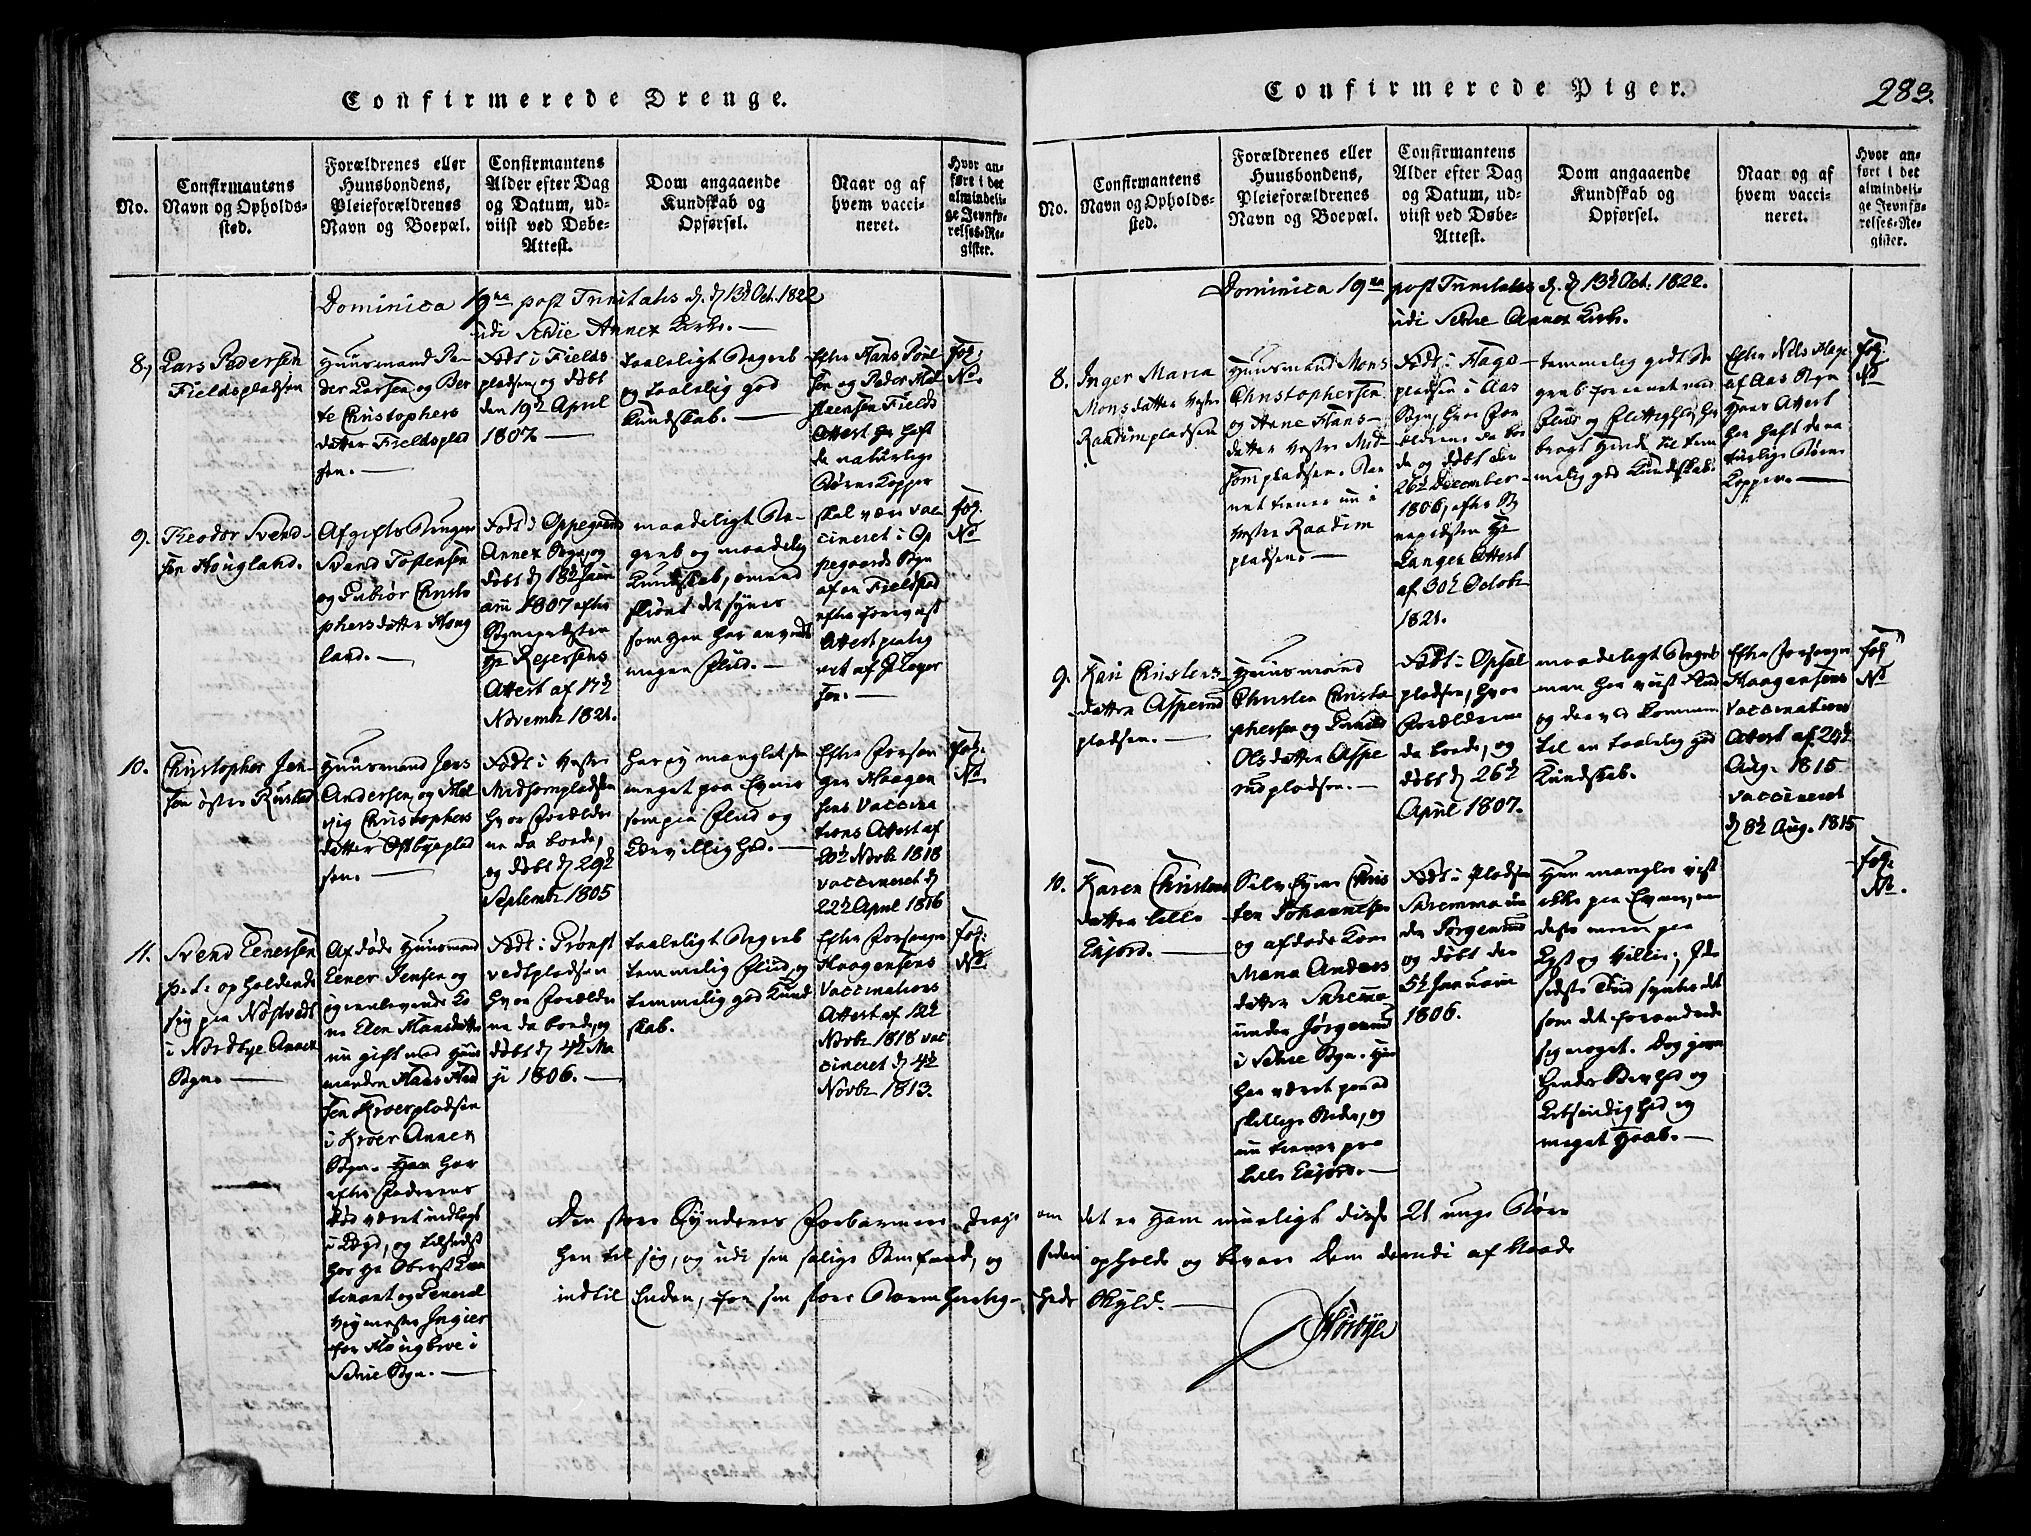 Confirmerede Drenge.
No.
Confirmantens
Navn og Opholds-
sted.
Forældrenes eller
Huusbondens,
Pleieforældrenes
Navn og Boepæl.
Confirmantens
Alder efter Dag
og Datum, ud-
viist ved Døbe-
Attest.
Dom angaaende
Kundskab og
Opførsel.
Naar og af
hvem vacci-
neret.
Hvor an-
ført i det
almindeli-
ge Jevnfø-
relses-Re-
gister.
Dominica 19na post Trinitatis d. 13de Oct. 1822
udi Schie Annex Kirke.
8.
Lars Pedersen
Fieldspladsen
Huusmand Pe-
der Larsen og Ber-
te Christophers
datter Fieldsplad
sen.
Født i Fields
pladsen og døbt
den 19de April
1807.
taaleligt Begreb
og taalelig god
Kundskab.
Efter Hans Poul
sen og Peder Hal
steensen Fields
Attest har haft
de naturlige
Børne Kopper
fol:
No.
9.
Theodor Svend-
sen Hougland.
Afgifts Bruger
Svend Tostensen
og Gubiør Christo
phersdatter Houg
land.
Født i Oppegaard
Annex Sogn, og
døbt d 18de Janu
arii 1807 efter
Sognepræsten
Hr Rejersens
Attest af 17de
Novembr 1821.
maadeligt Be-
greb og maadelig
Kundskab,
skiønt det synes
som han har anvendt
megen Fliid.
skal være vac
cineret i Op
pegaards Sogn
af en Fieldstad
efter foreviist
Attest
ert af P Loyer
sen.
fol.
No
10.
Christopher Jen-
sen østre Rustad
Huusmand Jens
Andersen og Hel
vig Christophers
datter Ostbyeplad
sen.
Født i Vestre
Midsompladsen
hvor Forældre
ne da boede,
og døbt d 29de
Septembr 1805
har ej manglet saa
meget paa Evner
som paa Fliid og
Lærvillighed.
Efter Jørgen
gen Haagen
sens Vaccina
tions Attest af
20de Novbr 1818
vaccineret d
22de April 1816
fol.
No.
11.
Svend Eenersen
p: t: opholdende
sig paa Nøstvedt
i Nordbye Annex
Sogn.
Afdøde Huusmand
Eener Jensen og
igienlevende Ko
ne Elen Hansdatter
nu gift med Huus
manden Hans Han
sen Kroerpladsen
i Kroer Annex
Sogn. Han har
efter Faderens
Død været indlagt
i Lægd, og tilsidst
hos Hr Oberst Lieu
tenant og General
Vejmester Ingier
for Hougbroe i
Schie Sogn.
Født i Grønst
vedtpladsen
hvor Forældre
ne da boede, og
døbt d 4de Ma
ji 1806.
taaleligt Begreb
temmelig Fliid, og
temmelig god Kund
skab.
Efter Jørgen
Haagensens
Vaccinations
Attest af 12de
Novbr 1818 vac
cineret d 4de
Novbr 1813.
fol:
No.
Confirmerede Piger.
283.
No.
Confirmantens
Navn og Opholds-
sted.
Forældrenes eller
Huusbondens,
Pleieforældrenes
Navn og Boepæl.
Confirmantens
Alder efter Dag
og Datum, ud-
viist ved Døbe-
Attest.
Dom angaaende
Kundskab og
Opførsel.
Naar og af
hvem vacci-
neret.
Hvor an-
ført i det
almindeli-
ge Jevnfø-
relses-Re-
gister.
Dominica 19na post Trinitatis d. 13de Oct. 1822.
udi Schie Annex Kirke.
8.
Inger Maria
Monsdatter Vestre
Raadimpladsen
Huusmand Mons
Christophersen
og Anne Hans-
datter Vestre Mid-
sompladsen.
tiener nu i
Vestre Raadim
pladsen.
Født i Haga
pladsen i Aas
Sogn, hvor For
ældrene da boe
de og døbt den
26de December
1806, efter Sog
nepræsten Hr
Langes Attest
af 30de Octobr
1821.
temmelig godt Be
greb forenet med
Fliid og Flittighed, har
bragt hende til tem
melig god Kundskab.
Efter Niels Hage
af Aas Sogn
Hans Attest
har haft de na
turlige Børne
Kopper.
fol.
No
9.
Kari Christens-
datter Asperud
pladsen.
Huusmand
Christen Christo
phersen og Gunild
Olsdatter Aspe
rudpladsen.
Født i Opsal
pladsen, hvor
Forældrene
da boede, og
døbt d 26de
April 1807.
maadeligt Begreb
men har viist Fliid
og derved kommen
til en taalelig god
Kundskab.
Efter Jørgen
Haagensens
Vaccinations
Attest af 29de
Aug. 1815
vaccineret
d 8de Aug. 1815
fol
No
10.
Karen Christens
datter Lille
Enjord.
Selv Ejer Chris
ten Johannesen
og afdøde Kone
Maria Anders
datter Skremma
under Jørgenrud
i Schie Sogn. Hun
har været paa ad
skillige Steder, og
nu tiener paa
Lille Enjord.
Født i Pladsen
Skremma un
der Jørgenrud
og døbt den
5de Januarii
1806.
Hun mangler vist
ikke paa Evner, men
desto mere paa
Lyst og Villie; I den
sidste Tiid syntes det
som det forandrede
sig noget. Dog giver
hendes Bevished og
Letsindighed ej
meget Haab.
fol.
No.
Den store Synderes Forbarmer drage om det er Ham mueligt disse 21 unge Børn
hen til sig, og udi sin salige Samfund, og siden opholde og bevare Dem derudi af Naade
indtil Enden, for sin store Barmhertig-heds Skyld.
Hørbye